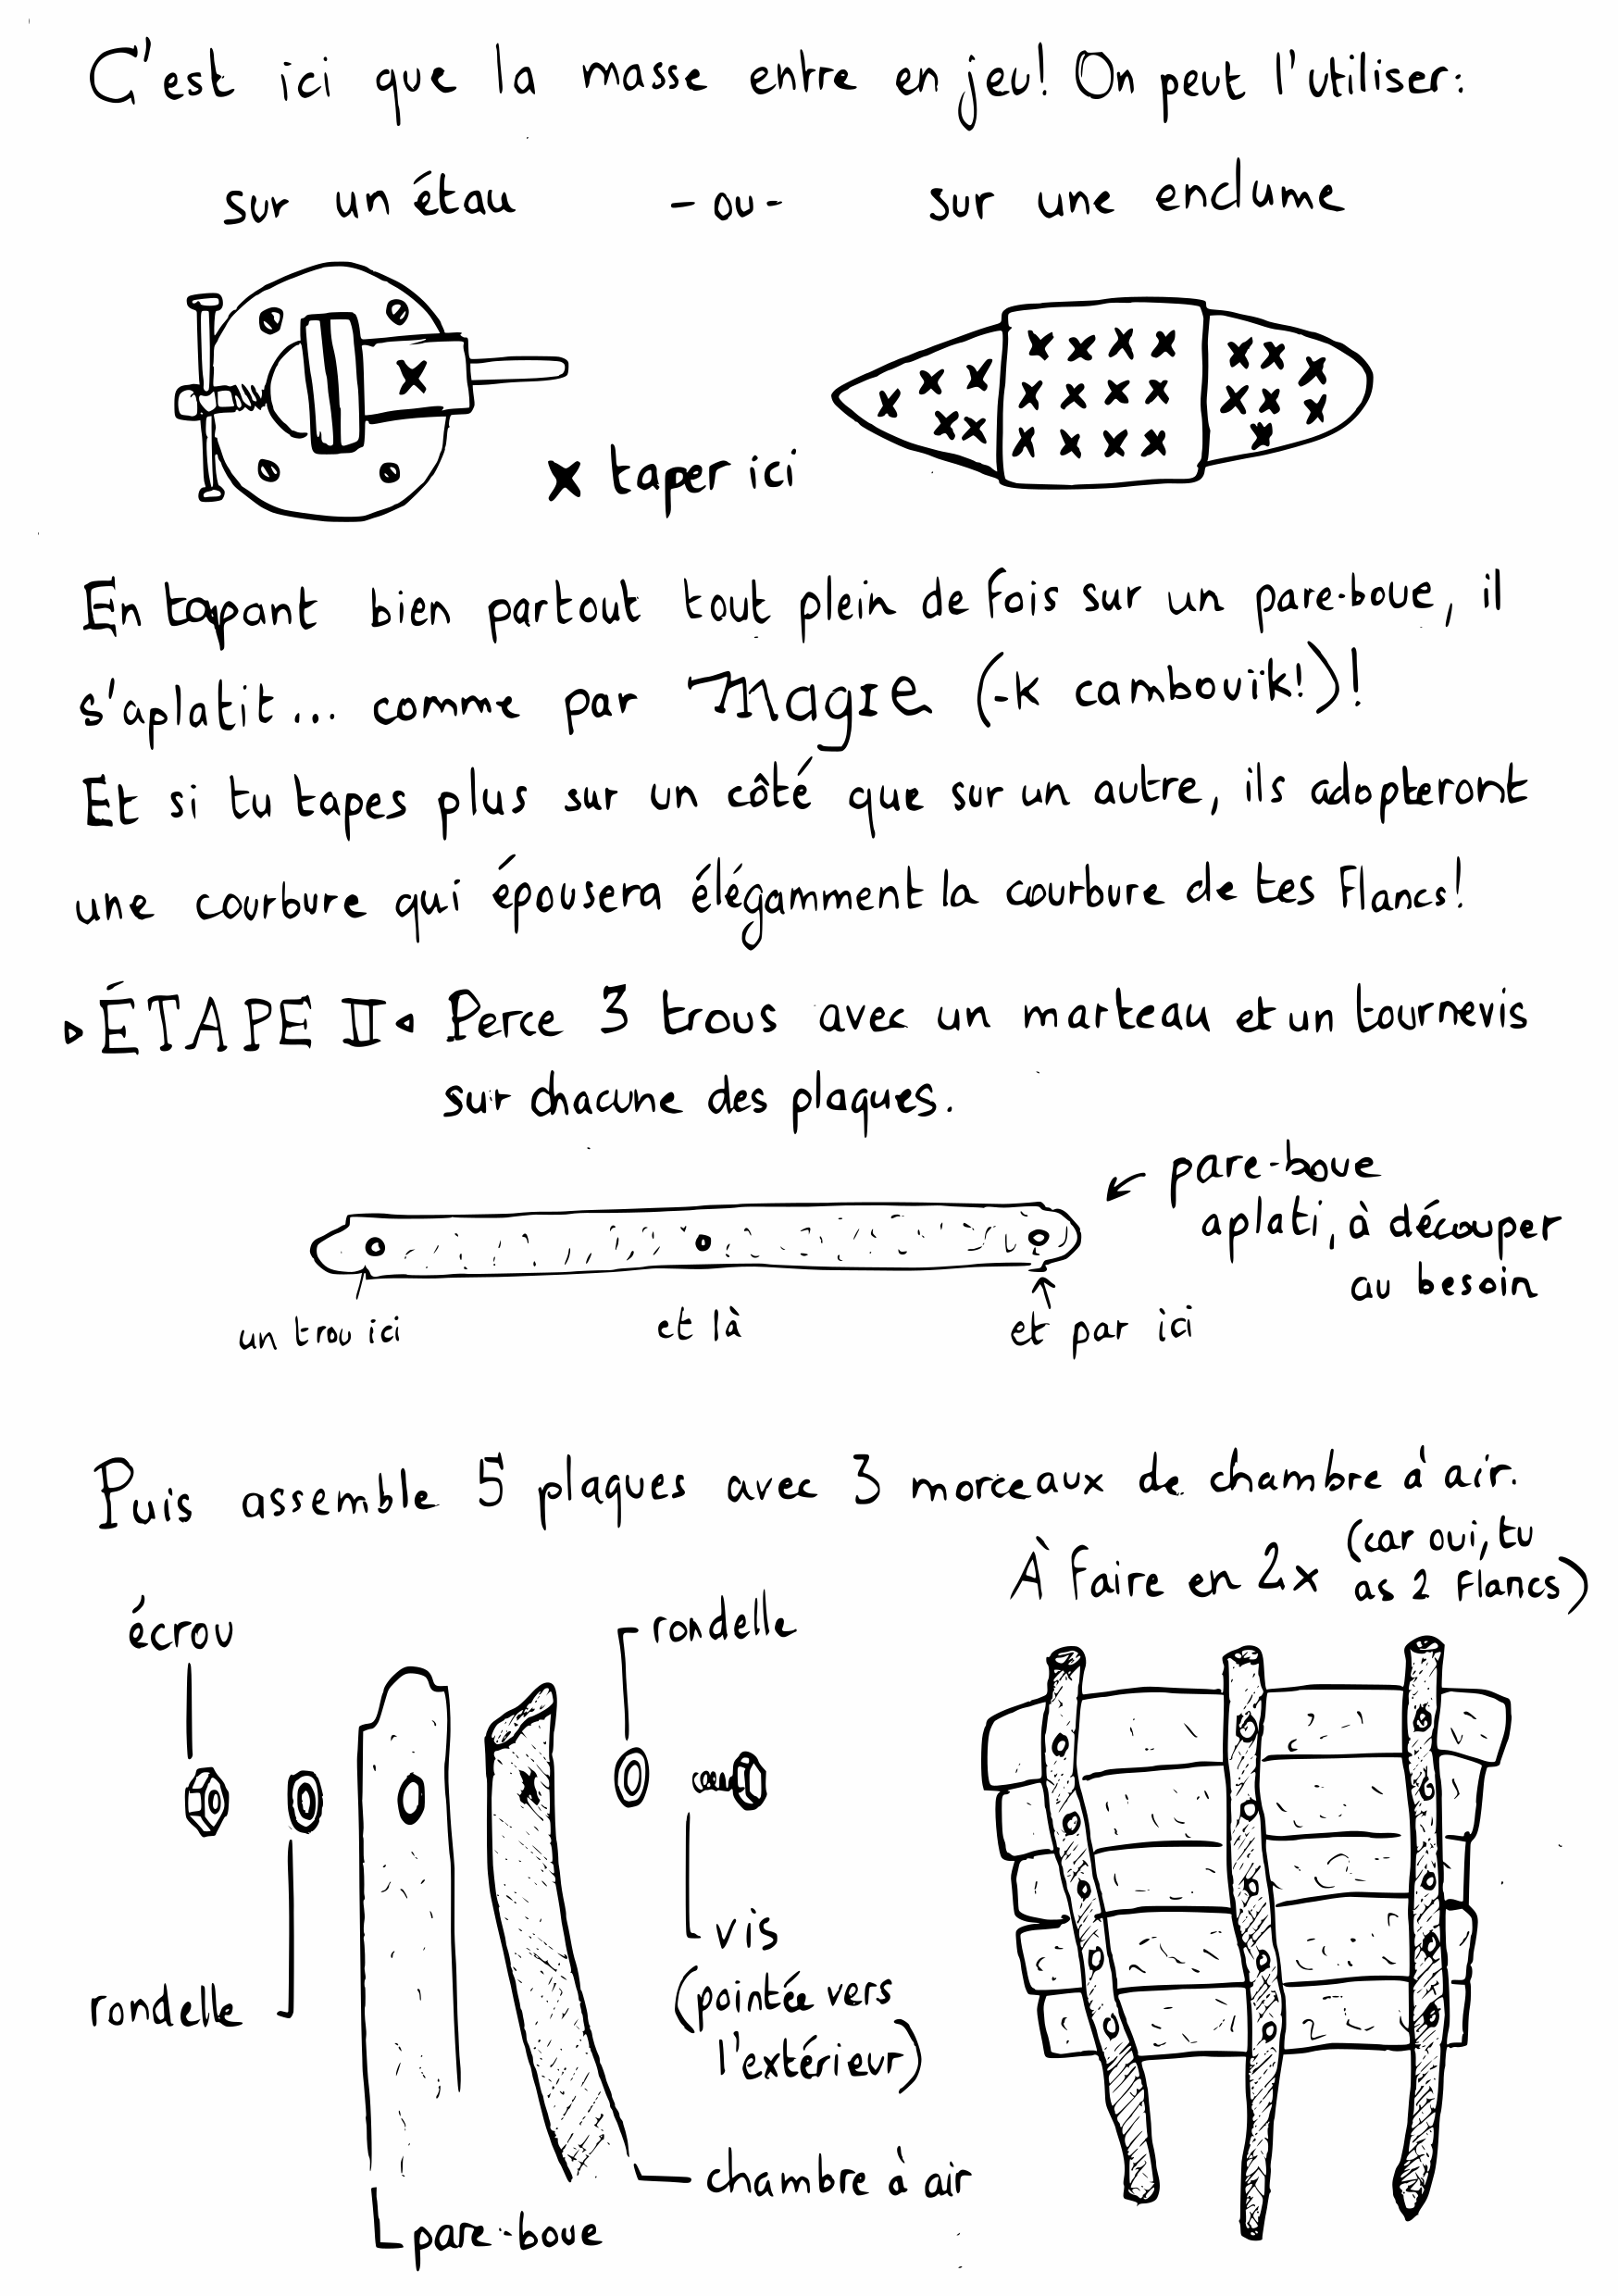 C'est ici que la masse entre en jeu! On peut l'utiliser:
sur un étau - ou - sur une enclume
x taper ici
En tapant bien partout tout plein de fois sur un pare-boue, il
s'aplatit... comme par MagIe (-k cambouïk!)!
Et si tu tapes plus sur un côté que sur un autre, ils adopteront
une courbure qui épousera élégamment la courbure de tes flancs!
▹ÉTAPE II◃ Perce 3 trous avec un marteau et un tournevis
sur chacune des plaques.
pare-boue
aplati, à découper
au besoin
un trou ici et là et par ici
Puis assemble 5 plaques avec 3 morceaux de chambre à air.
À faire en 2x (car oui, tu
as 2 flancs)
écrou
rondelle
rondelle
vis
(pointée vers
l'extérieur)
chambre à air
pare-boue